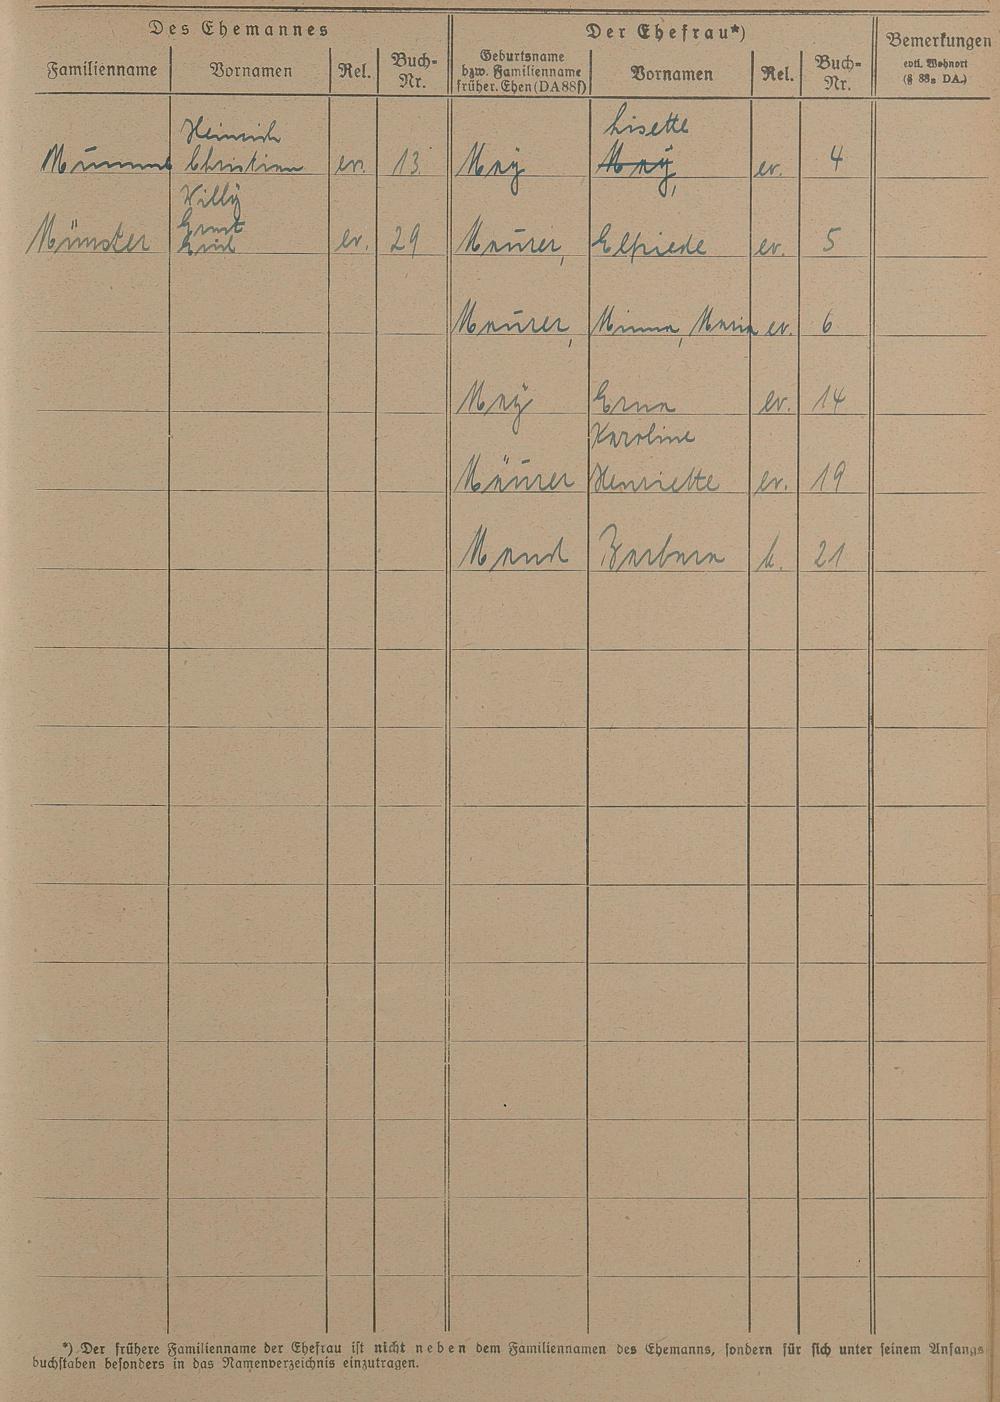 Des Ehemannes
Der Ehefrau*)
Bemerkungen
evtl. Wohnort
(§ 88a DA.)
Familienname
Vornamen
Rel.
Buch-
Nr.
Geburtsname
bzw. Familienname
früher. Ehen (DA 88f)
Vornamen
Rel.
Buch-
Nr.
Heinrich
Lisette
Christian ev. 13. Maÿ Maÿ, ev. 4
Willÿ
Ernst
Münster ev. 29 Maurer, Elfriede ev. 5
Maurer, Minna, Maria ev. 6
Maÿ Erna ev. 14
Karoline
Mäurer Henriette ev. 19
Mand Barbara k. 21
*) Der frühere Familienname der Ehefrau ist nicht neben dem Familiennamen des Ehemanns, sondern für sich unter seinem Anfangs
buchstaben besonders in das Namenverzeichnis einzutragen.